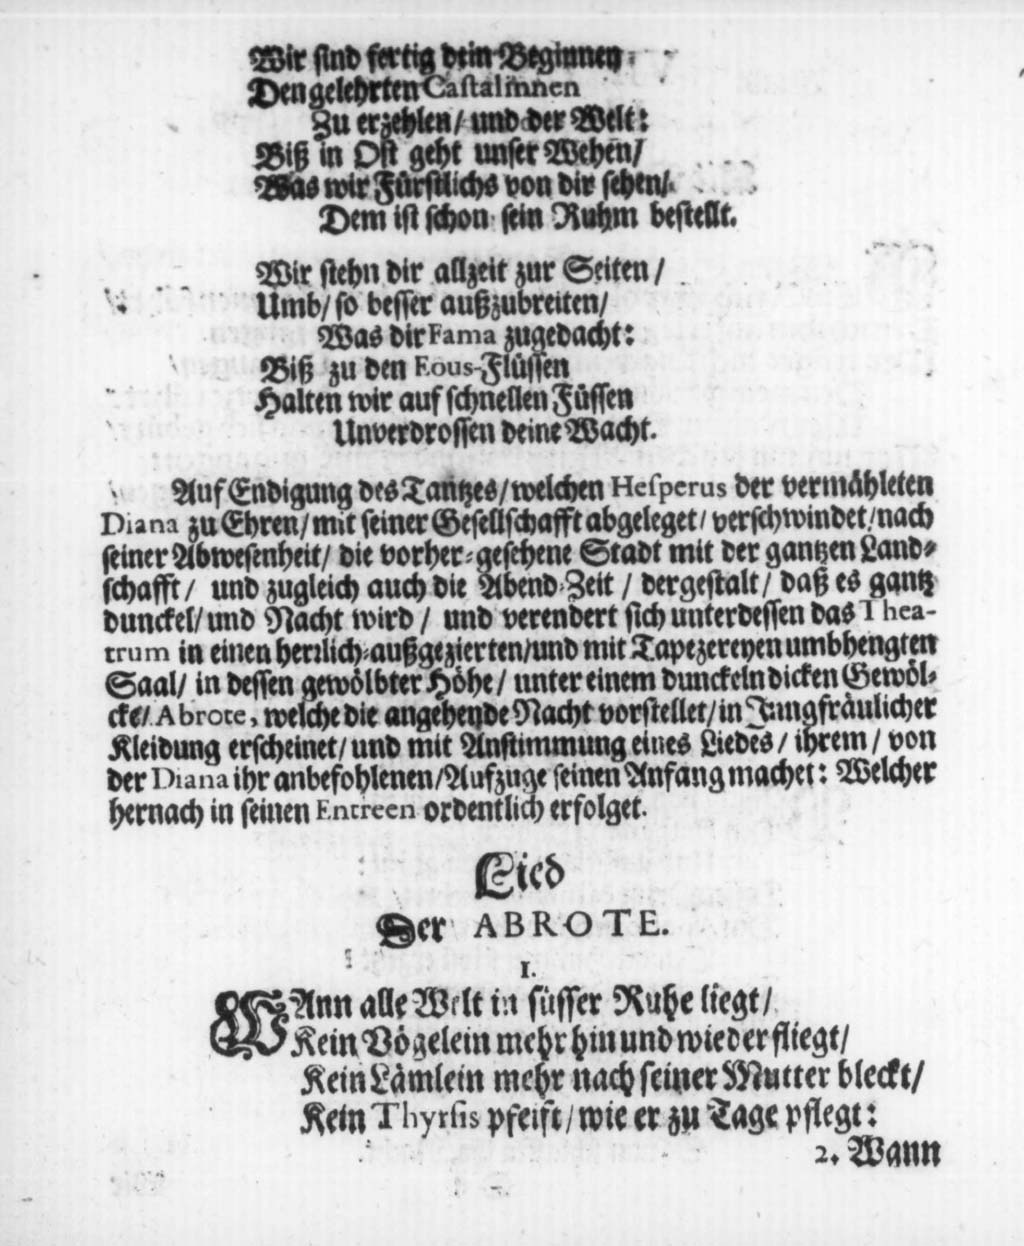 Wir sind fertig dein Beginnen
Den gelehrten Castalinnen
Zu erzehlen / und der Welt:
Biß in Ost geht unser Wehen /
Was wir Fürstlichs von dir sehen /
Dem ist schon sein Ruhm bestellt.
Wir stehn dir allzeit zur Seiten /
Umb / so besser außzubreiten /
Was dir Fama zugedacht:
Biß zu den Eous-Flüssen
Halten wir auf schnellen Füssen
Unverdrossen deine Wacht.
Auf Endigung des Tantzes / welchen Hesperus der vermähleten
Diana zu Ehren / mit seiner Gesellschafft abgeleget / verschwindet / nach
seiner Abwesenheit / die vorher-gesehene Stadt mit der gantzen Land-
schafft / und zugleich auch die Abend-Zeit / dergestalt / daß es gantz
dunckel / und Nacht wird / und verendert sich unterdessen das Thea-
trum in einen herrlich-außgezierten / und mit Tapezereyen umbhengten
Saal / in dessen gewölbter Höhe / unter einem dunckeln dicken Gewöl-
cke / Abrote, welche die angehende Nacht vorstellet / in Jungfräulicher
Kleidung erscheinet / und mit Anstimmung eines Liedes / ihrem / von
der Diana ihr anbefohlenen / Aufzuge seinen Anfang machet: Welcher
hernach in seinen Entreen ordentlich erfolget.
Lied
Der ABROTE.
1.
WAnn alle Welt in süsser Ruhe liegt /
Kein Vögelein mehr hin und wieder fliegt /
Kein Lämlein mehr nach seiner Mutter bleckt /
Kein Thyrsis pfeift / wie er zu Tage pflegt:
2. Wann